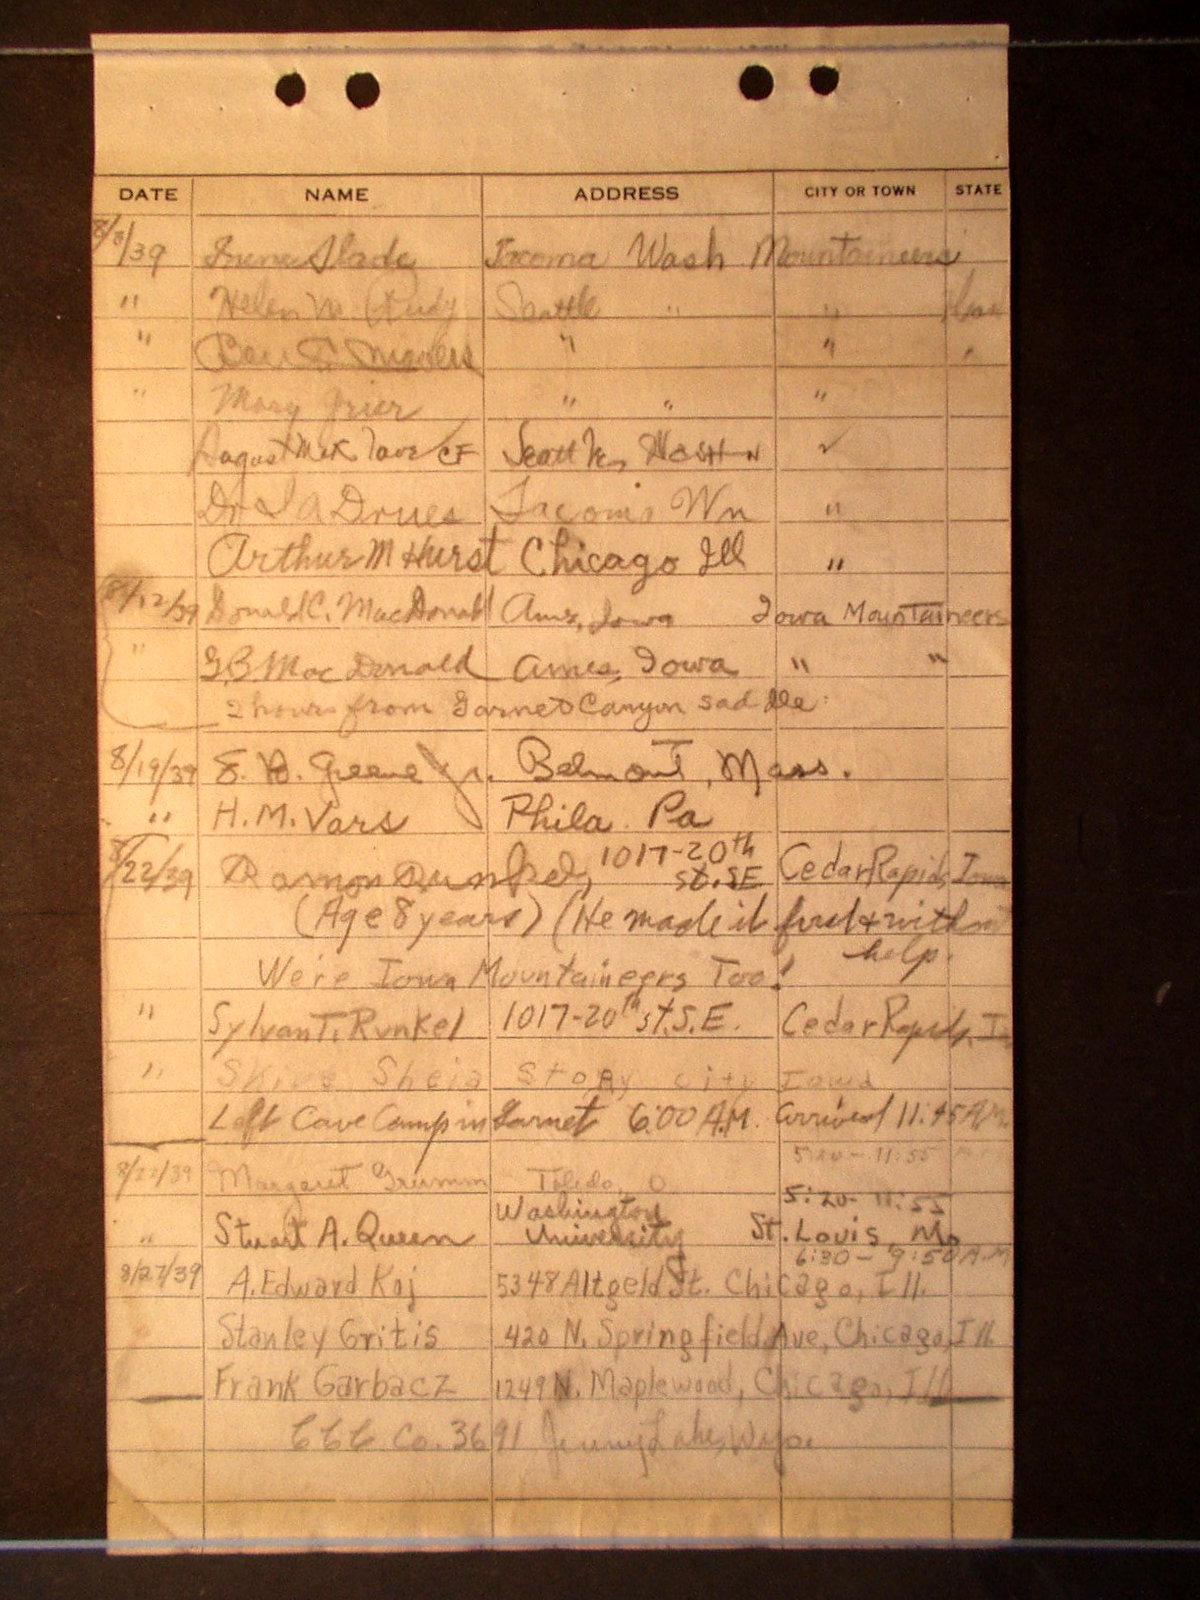 DATE NAME ADDRESS CITY OR TOWN STATE
8/8/39 Irene Slade Tacoma Wash Mountaineers
" Helen M. Rudy Seattle " "
" " "
" Mary Grier " " "
August Seattle, WASHN ✓
Dr Tacoma Wn "
Arthur M Hurst Chicago Ill "
8/12/39 Donald C. MacDonald Ames, Iowa Iowa Mountaineers
" G.B. MacDonald Ames, Iowa " "
2 hours from Garnet Canyon saddle.
8/19/39 E. B. Greene Jr. Belmont, Mass.
" H.M. Vars Phila. Pa
8/22/39 Ramon Runkel, 1017-20th St. SE Cedar Rapids, Iowa
(Age 8 years) (He made it first & without
help.
We're Iowa Mountaineers Too!
" Sylvan T. Runkel 1017-20th St. S.E. Cedar Rapids, Ia
" Story City Iowa
Left Cave Camp in Garnet 6:00 A.M. arrived 11:45 AM.
5:20 - 11:55
8/22/39 Margaret Grumm Toledo, O
5:20 - 11:55
" Stuart A. Queen Washington University St. Louis, Mo
6:30 - 9:50 A.M
8/27/39 A. Edward Koj 5348 Altgeld St. Chicago, Ill.
Stanley Gritis 420 N. Springfield Ave, Chicago, Ill
Frank Garbacz 1249 N. Maplewood, Chicago, Ill
CCC Co. 3691 Jenny Lake, Wyo.